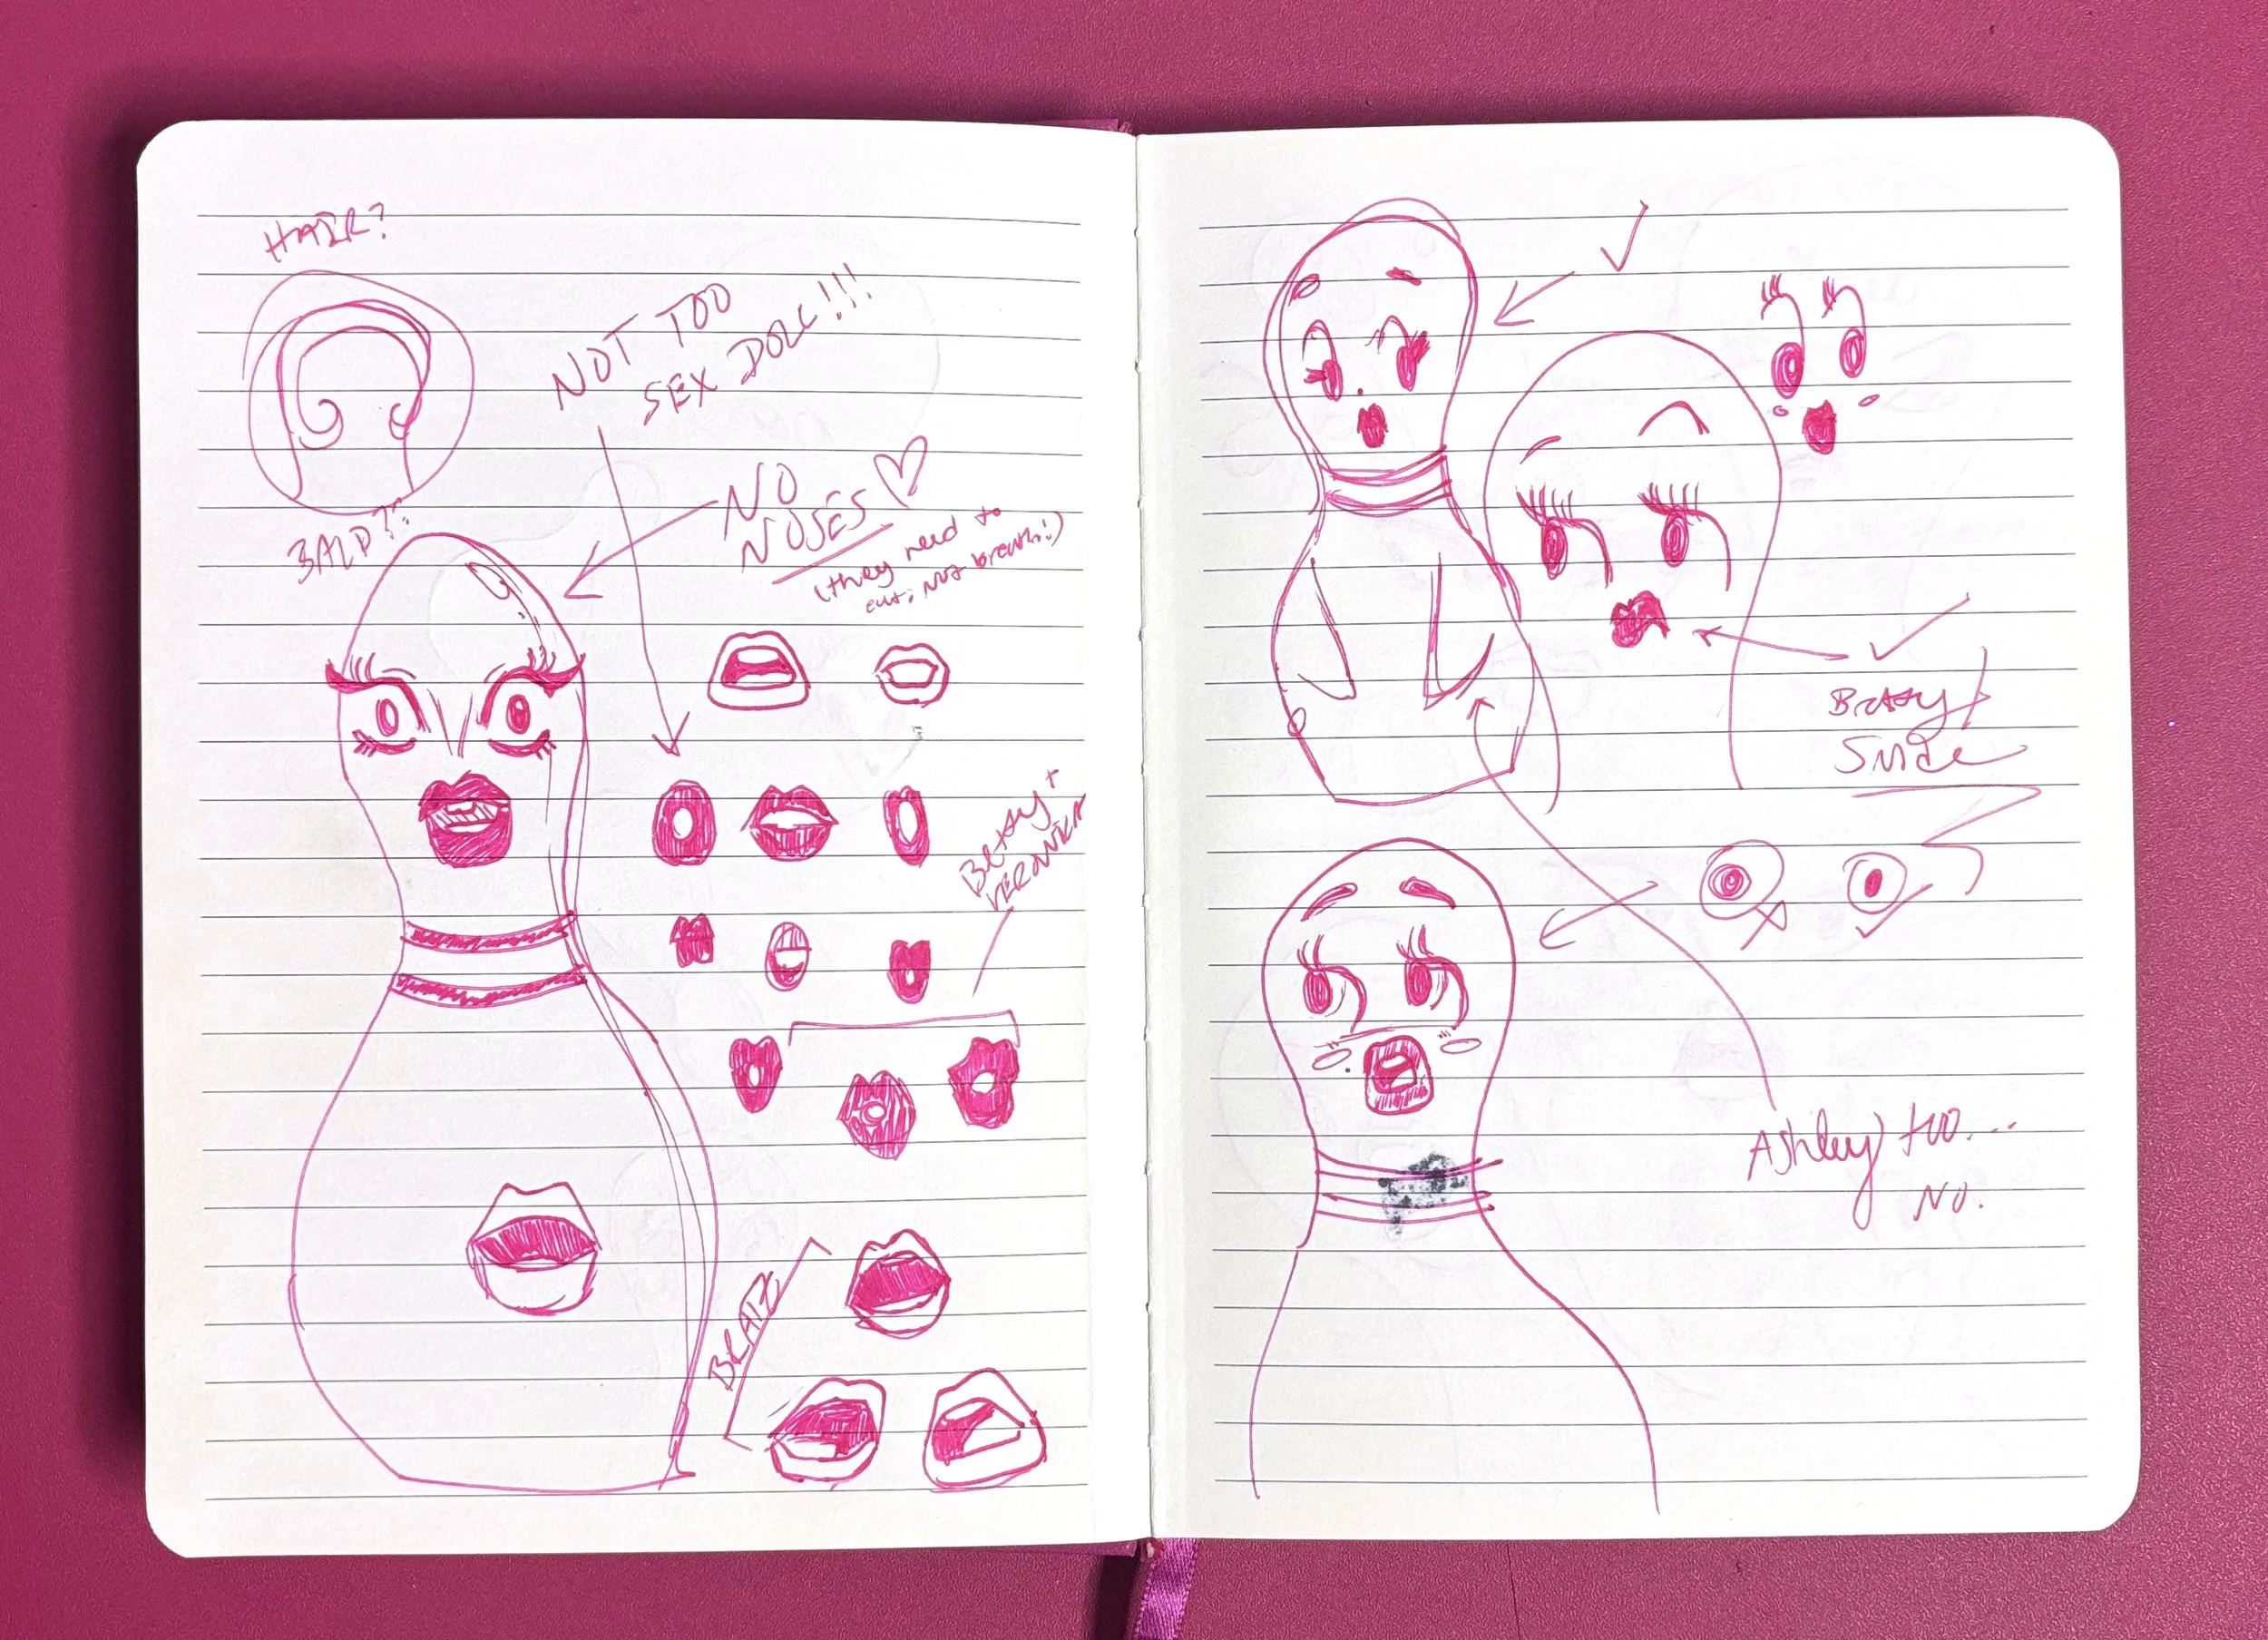 HAIR?
BALD??
NOT TOO
SEX DOLL!!!
NO
NOSES
(they need to
eat, not breath!)
Betsy +
VERONICA
BLATZ
Betsy
Smize
Ashley) too....
No.